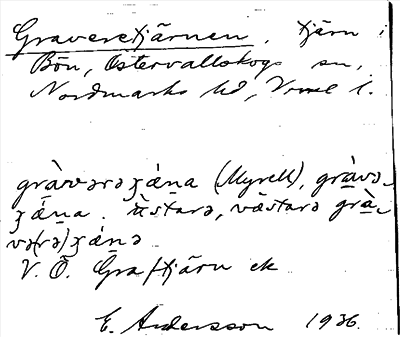 Graveretjärnen. tjärn i
Bön, Östervallskogs sn,
Nordmarks hd, Vrml l.
gràvərəʒǽṇa (Myrell), grà̱və-
ʒǽṇa. ùstarə, vǟstarə grà̱-
və(rə)ʒǽṇə
V. Ö. Graftjärn ek
E. Andersson 1936.